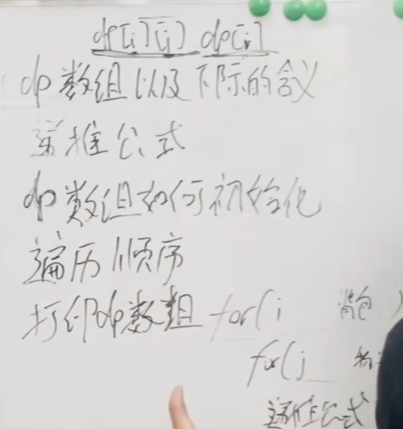 dp[i][j] dp[i]
dp数组以及下标的含义
递推公式
dp数组如何初始化
遍历顺序
打印dp数组 for(i 背包)
for(j 物
递推公式